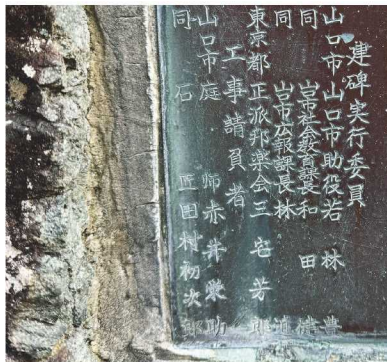 建碑実行委員
山口市 山口市助役 若林
同 山口市社会教育課長 和田
同 山口市広報課長 林
東京都 正派邦楽会 三宅芳
工事請負者
山口市 庭師 赤井 助
同 石匠 田村初次郎